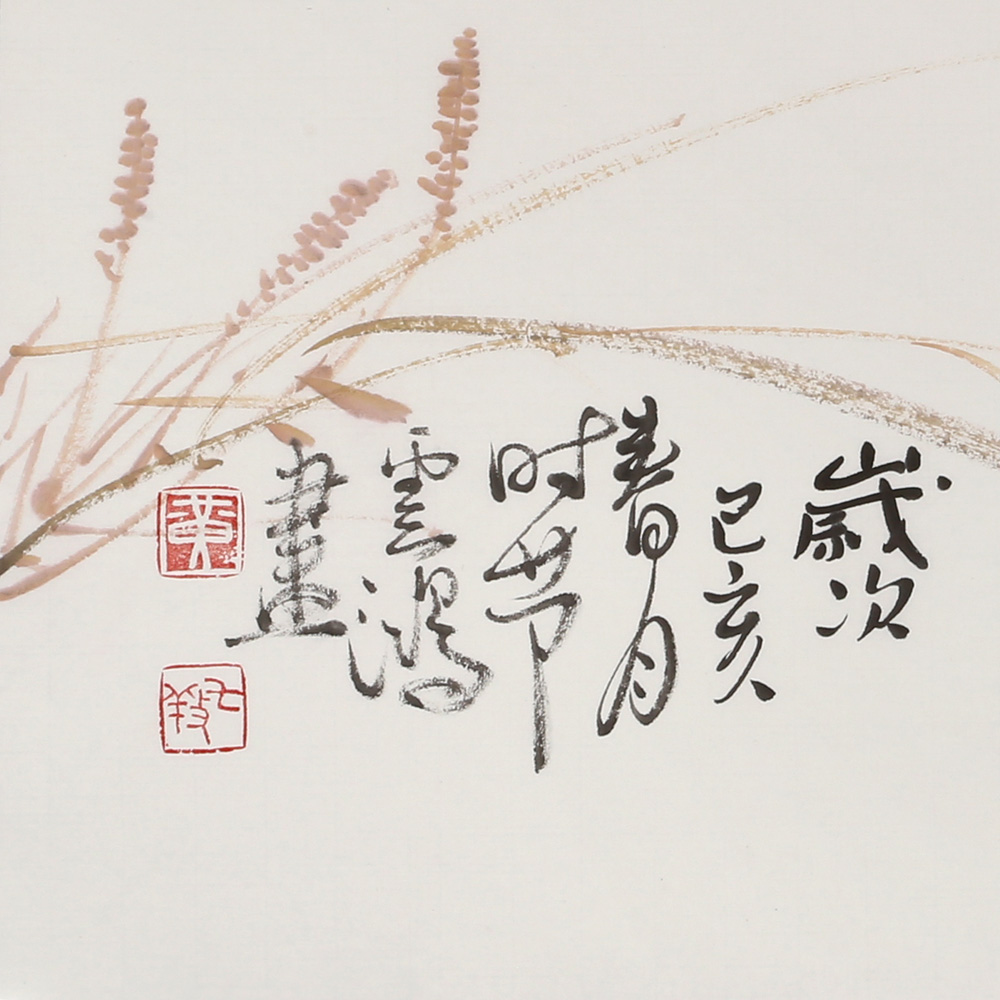 歲次
己亥
春月
时节
雲鴻
畫
黄